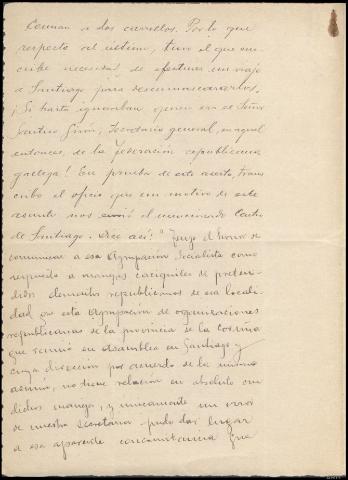 Comían a dos carrillos. Por lo que
respecta al último, tuvo el que sus-
cribe necesidad de efectuar un viaje
a Santiago para desenmascararlos.
¡Si hasta ignoraban quien era el Señor
Santiso Girón, Secretario general, en aquel
entonces, de la Federación republicana
gallega! En prueba de este aserto, trans-
cribo el oficio que con motivo de este
asunto nos envió el mencionado Centro
de Santiago. Dice así: "Tengo el honor de
comunicar a esa Agrupación Socialista como
respuesta a manejos caciquiles de preten-
didos elementos republicanos de esa locali-
dad que esta Agrupación de organizaciones
republicanas de la provincia de la Coruña
que reunió en Asamblea en Santiago y
cuya dirección por acuerdo de la misma
asumió, no tiene relación en absoluto con
dichos manejos, y unicamente un error
de nuestra secretaría pudo dar lugar
a esa aparente concomitancia que